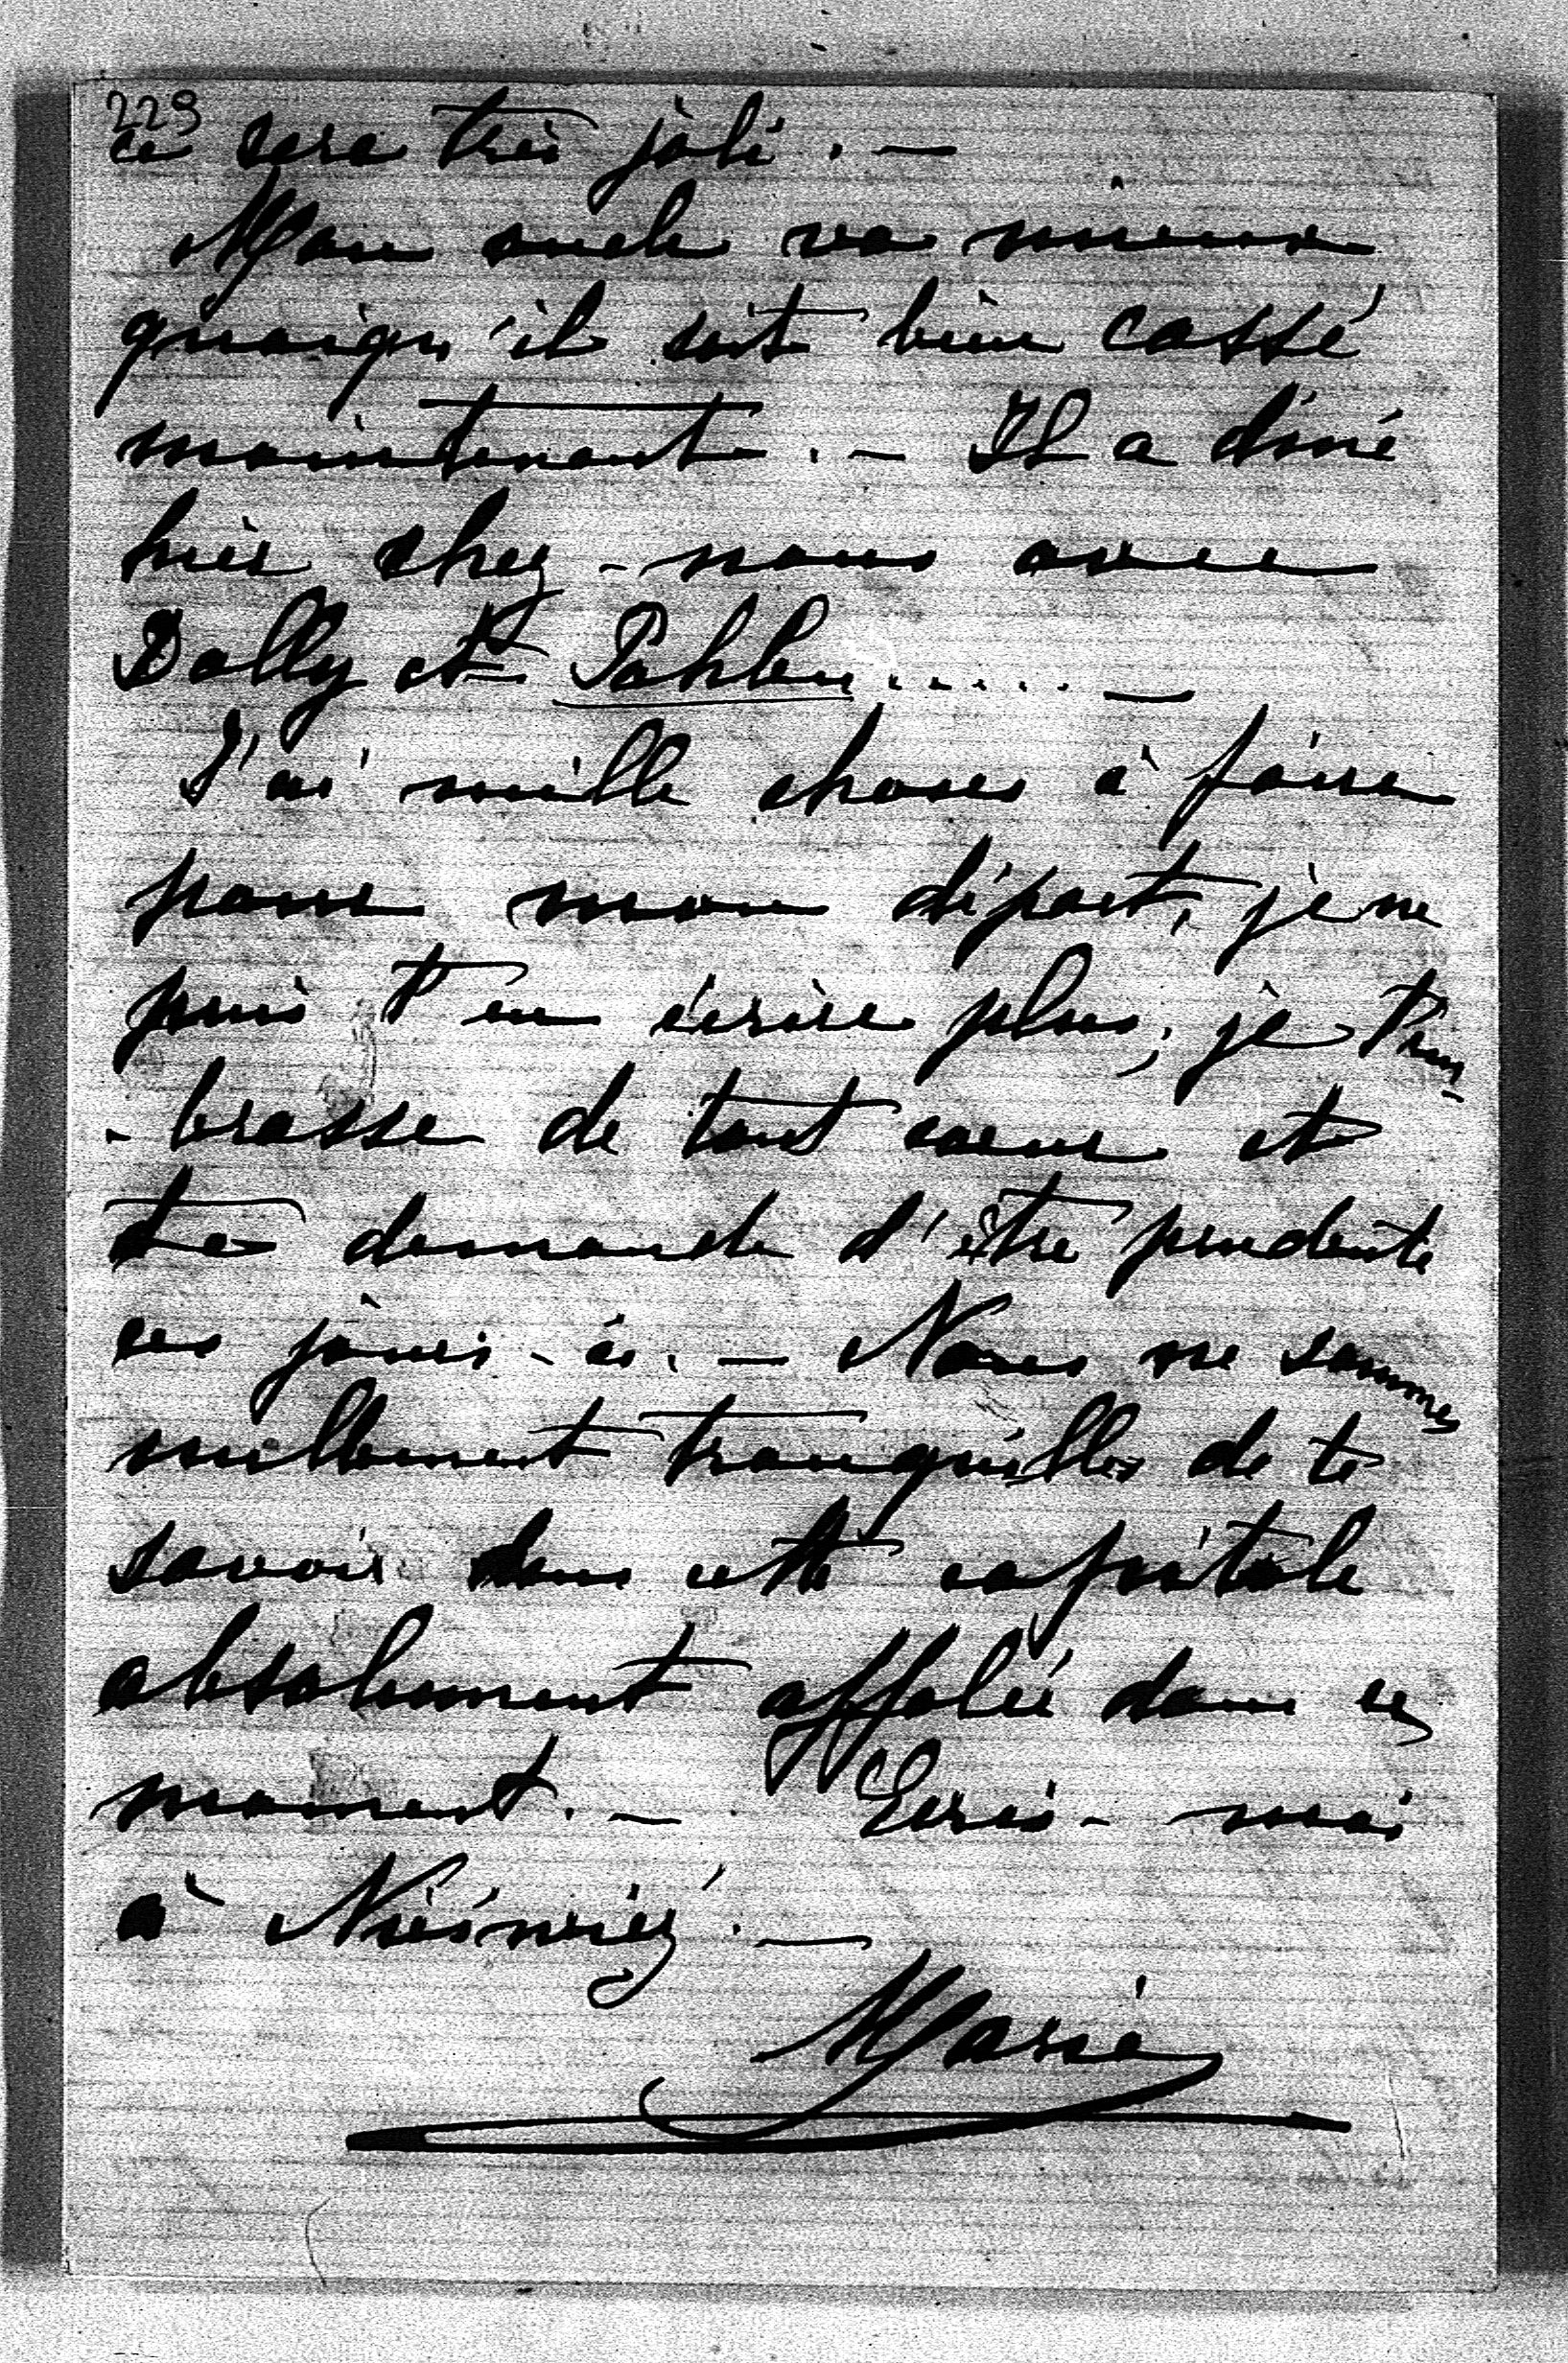 229
ce sera très joli. —
Mon oncle va mieux
quoiqu'il soit bien cassé
maintenant. — Il a diné
hier chez-nous avec
Dolly et Pahlen...... —
J'ai mille choses à faire
pour mon départ, je ne
puis t'en écrire plus; je t'em-
-brasse de tout coeur et
te demande d'être prudente
ces jours-ci. — Nous ne sommes
nullement tranquilles de te
savoir dans cette capitale
absolument affolée dans ce
moment. — Ecris-moi
à Nieśwież. —
Marie